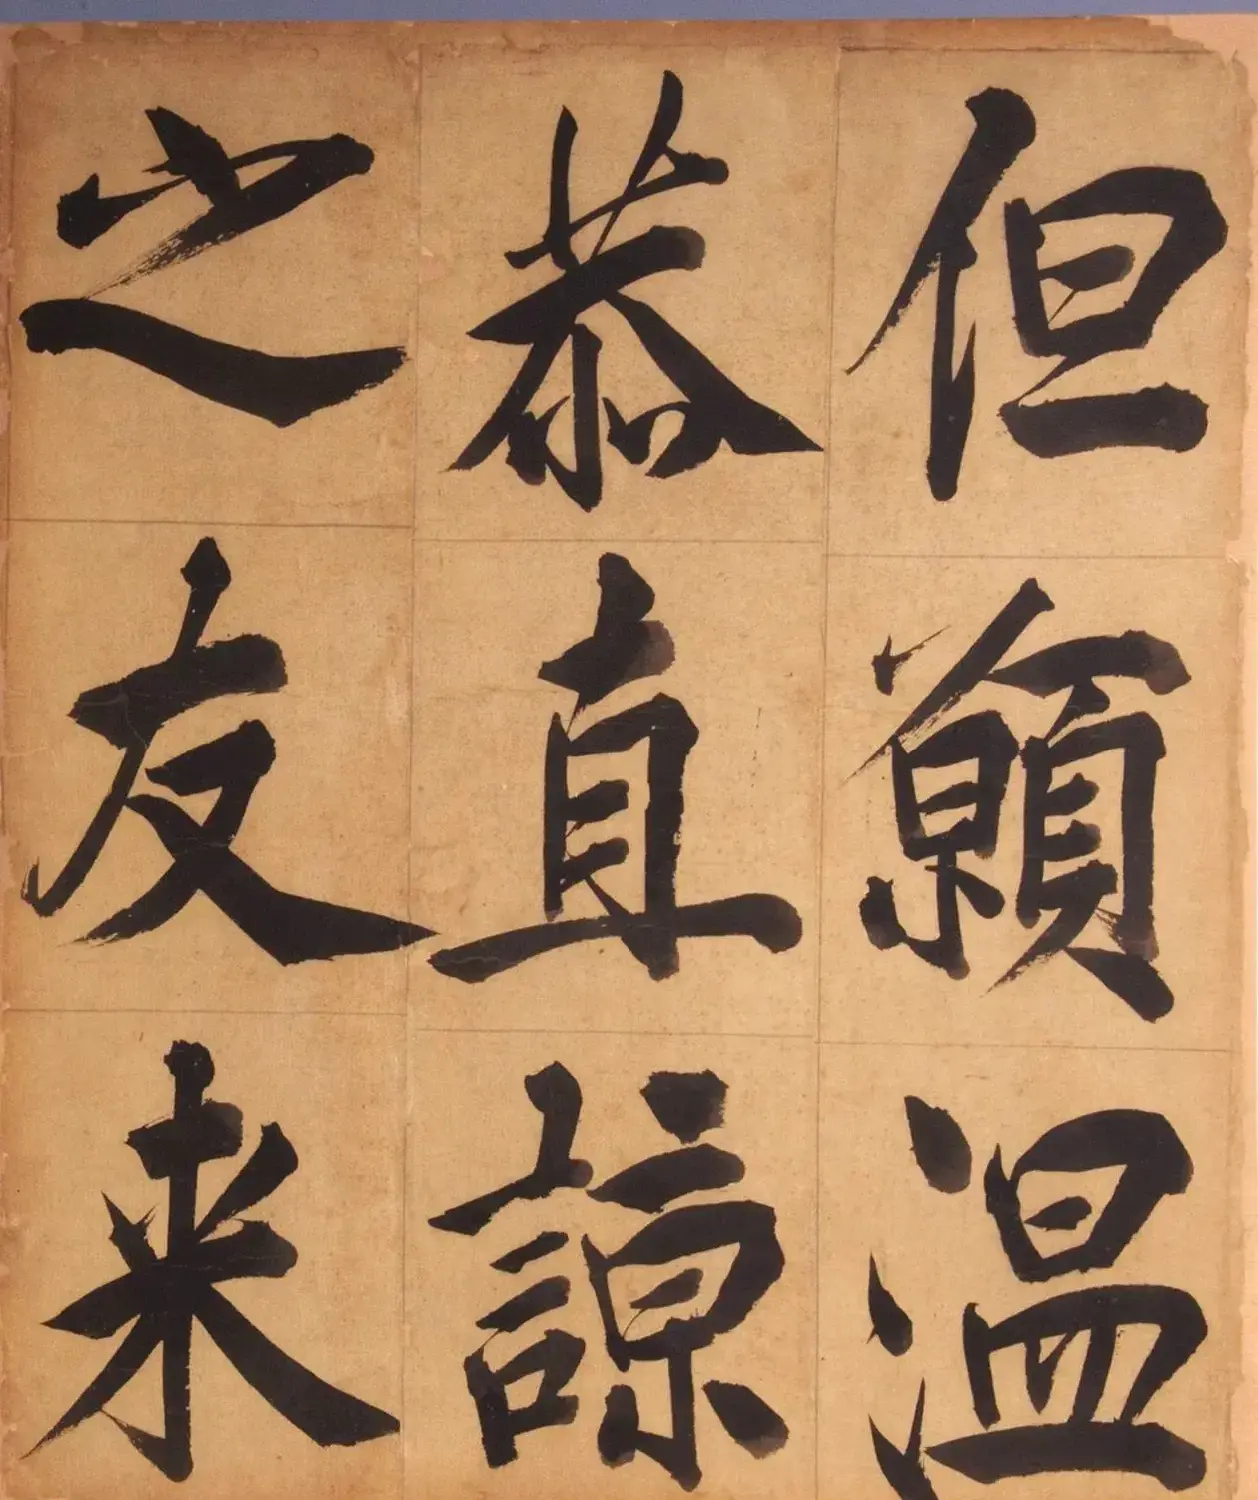 但願溫
恭直諒
之友来